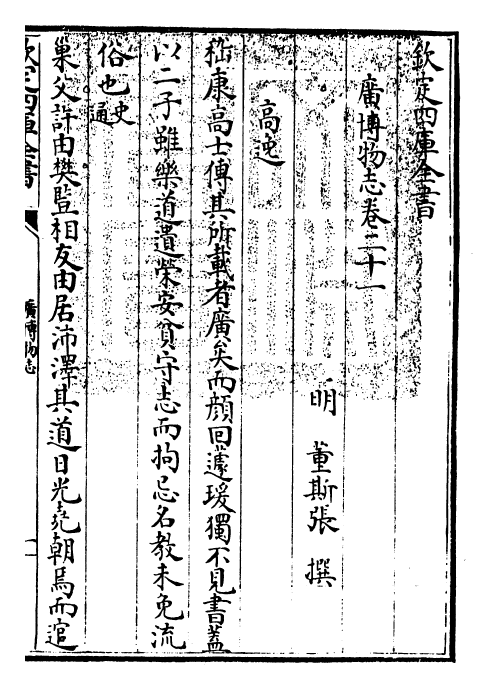 欽定四庫全書
廣博物志卷二十一
明　董斯張　撰
高逸
嵇康高士傳其所載者廣矣而顔回蘧瑗獨不見書蓋
以二子雖樂道遺榮安貧守志而拘忌名教未免流
俗也史通
巢父許由樊豎相友由居沛澤其道日光堯朝焉而逭
欽定四庫全書
廣博物志
一